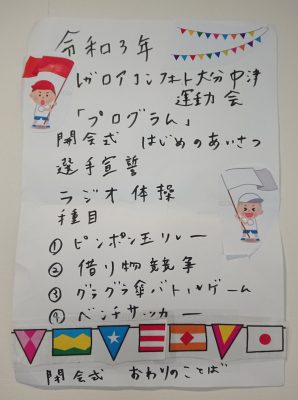 令和3年
レガロアコンフォート大分中津
運動会
「プログラム」
開会式 はじめのあいさつ
選手宣誓
ラジオ体操
種目
① ピンポン玉リレー
② 借り物競争
③ グラグラ傘バトルゲーム
④ ベンチサッカー
閉会式 おわりのことば